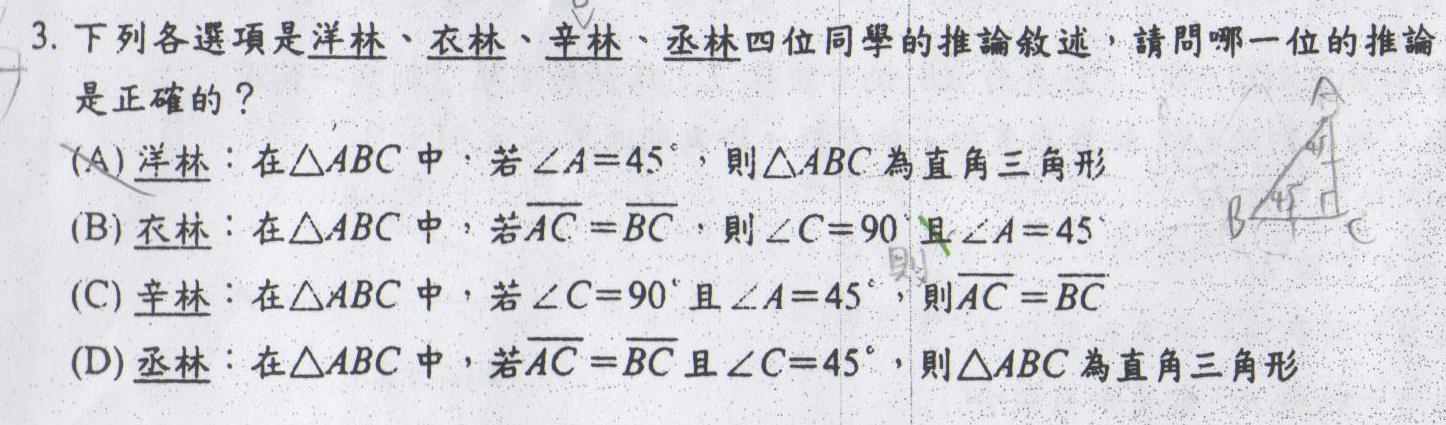 3. 下列各選項是洋林、衣林、辛林、丞林四位同學的推論敘述，請問哪一位的推論
是正確的？
(A) 洋林：在△ABC 中，若∠A=45°，則△ABC 為直角三角形
(B) 衣林：在△ABC 中，若\overline{AC}=\overline{BC}，則∠C=90°且∠A=45°
則
(C) 辛林：在△ABC 中，若∠C=90°且∠A=45°，則\overline{AC}=\overline{BC}
(D) 丞林：在△ABC 中，若\overline{AC}=\overline{BC}且∠C=45°，則△ABC 為直角三角形
A
45
B
45
C